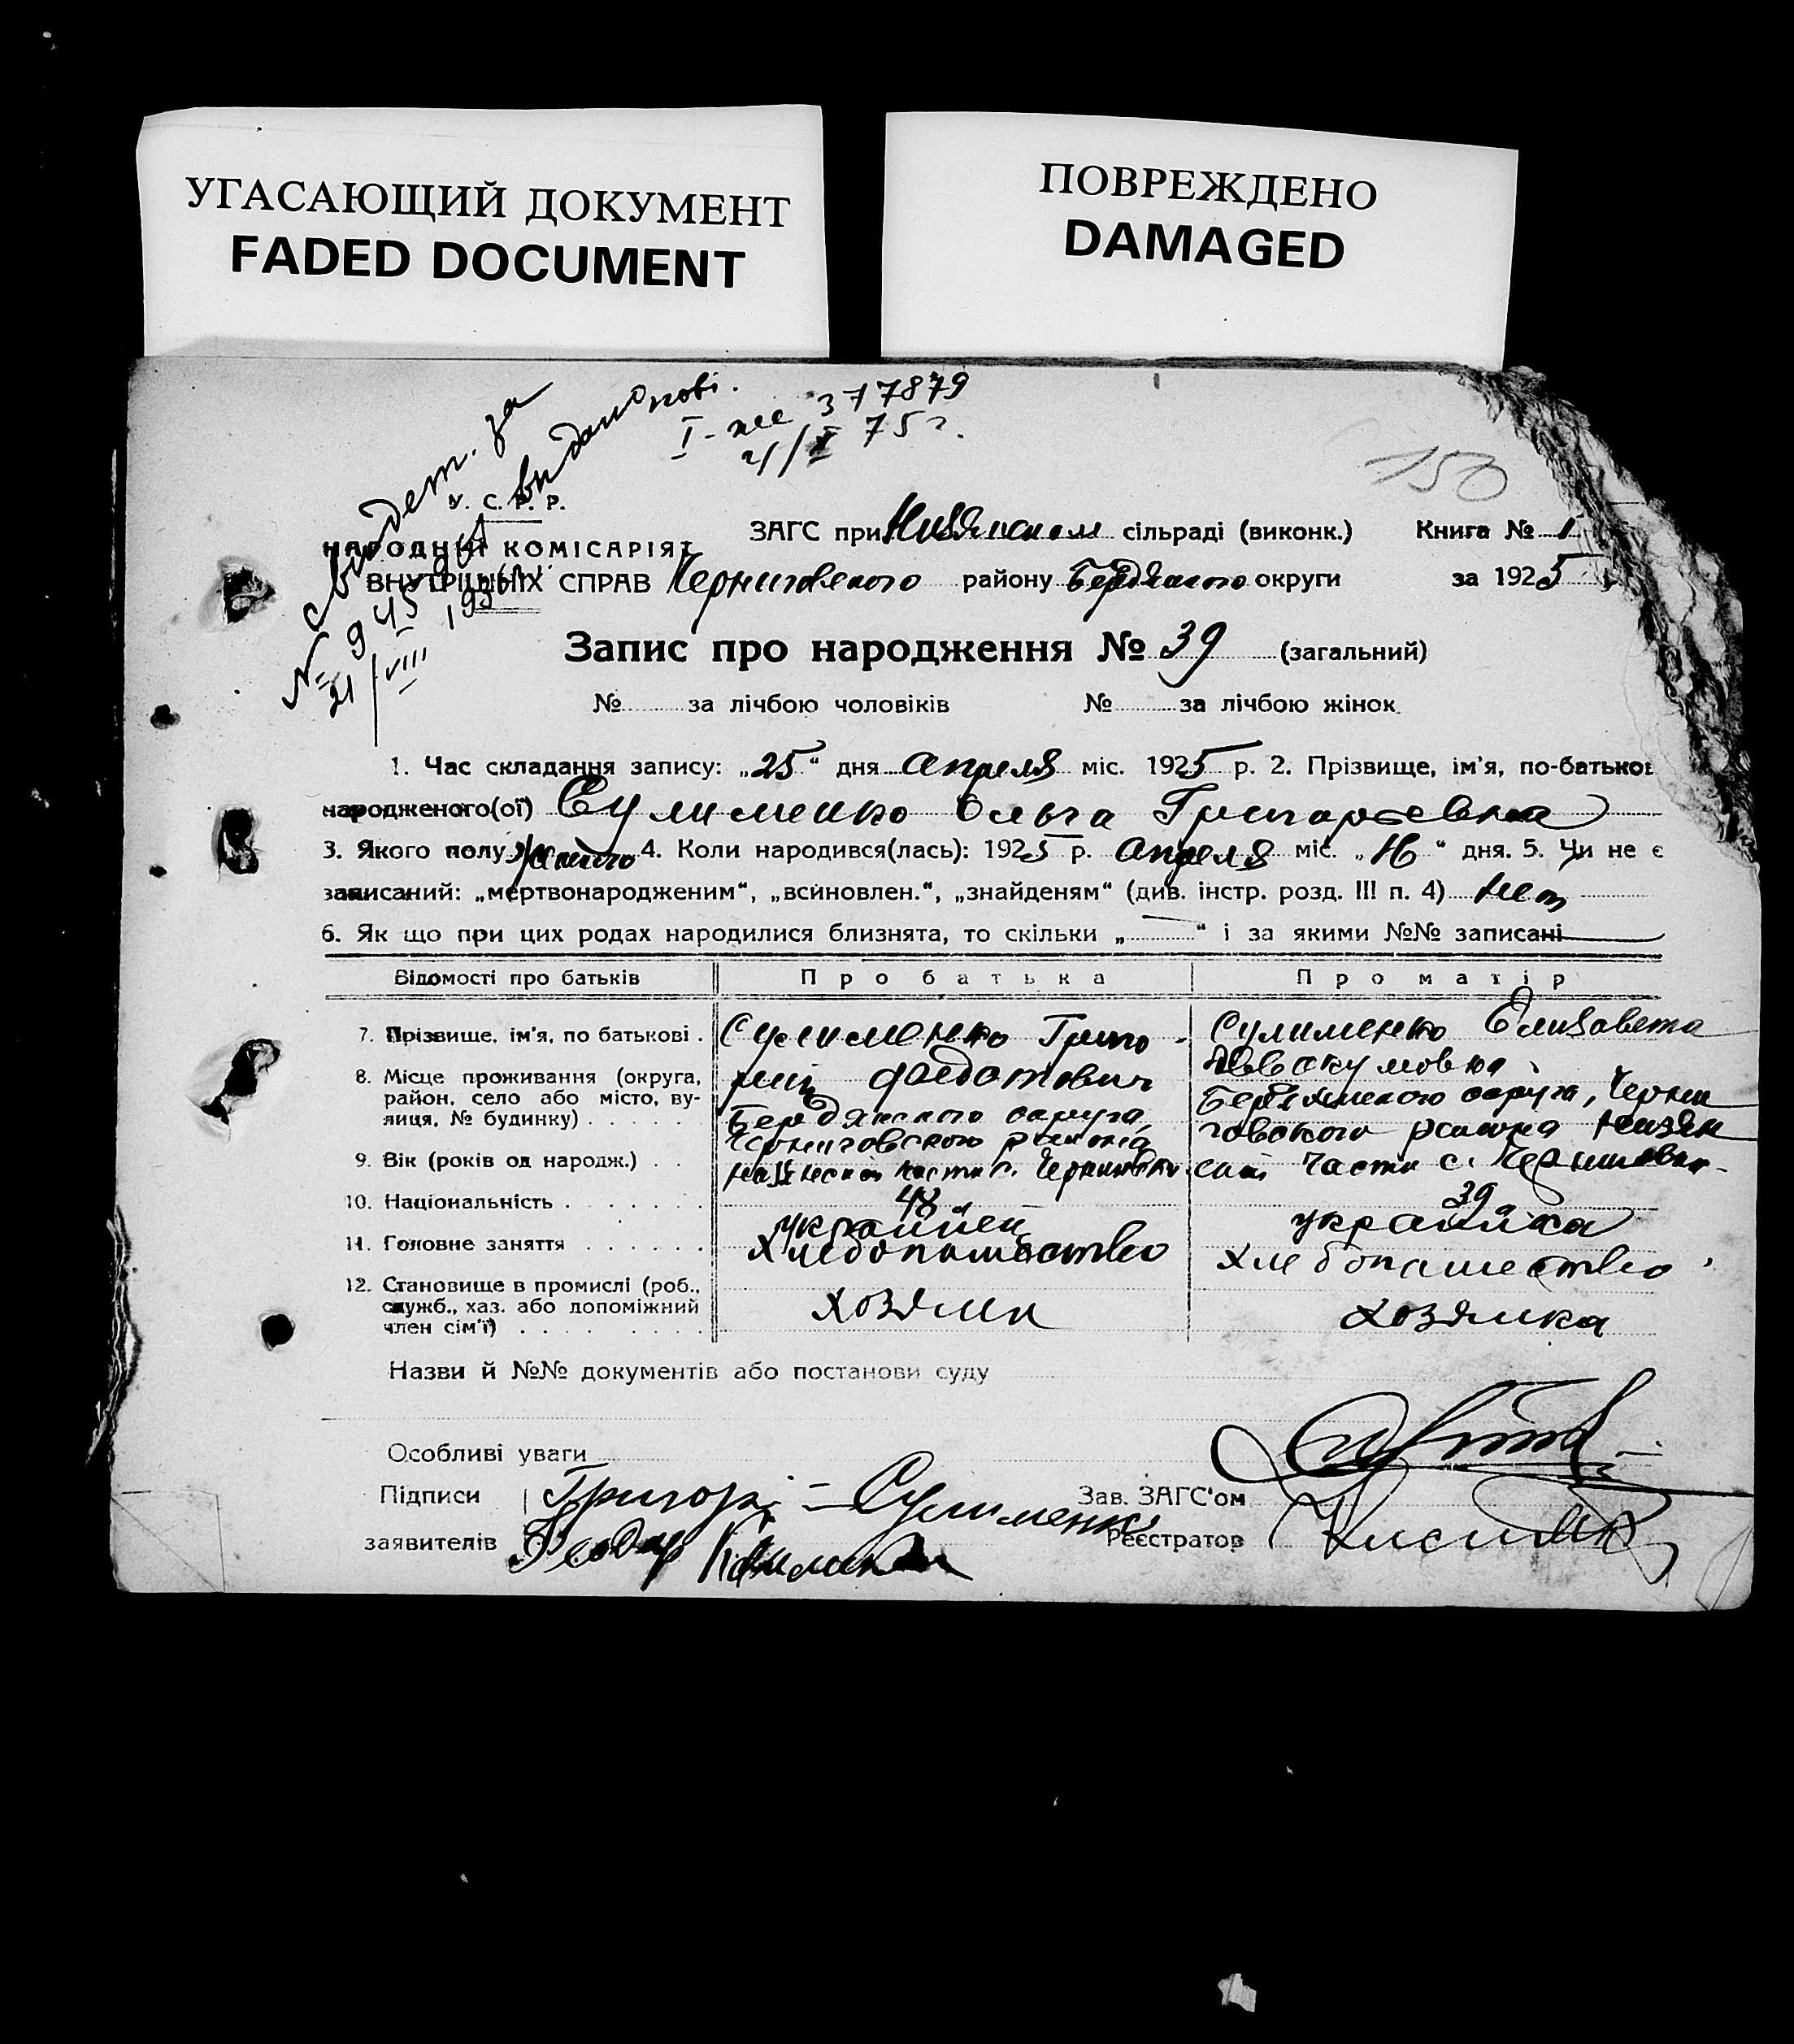 УГАСАЮЩИЙ ДОКУМЕНТ
FADED DOCUMENT
ПОВРЕЖДЕНО
DAMAGED
свидет. за
I-
75 г.
150
У. С. Р. Р.
НАРОДНІЙ КОМІСАРІЯТ
ВНУТРІШНІХ СПРАВ
№ 945
21/VIII
ЗАГС при сільраді (виконк.) Книга № 1
Черниговского району Бердянского округи за 1925
Запис про народження № 39 (загальний)
№ за лічбою чоловіків № за лічбою жінок
1. Час складання запису: „25“ дня апреля міс. 1925 р. 2. Прізвище, ім'я, по-батьков
народженого(ої) Сулименко Ольга Григорьевна
3. Якого полу 4. Коли народився(лась): 1925 р. апреля міс. „ “ дня. 5. Чи не є
записаний: „мертвонародженим“, „всиновлен.“, „знайденям“ (див. інстр. розд. III п. 4) нет
6. Як що при цих родах народилися близнята, то скільки „ “ і за якими №№ записані
Відомості про батьків Про батька Про матір
7. Прізвище, ім'я, по батькові . Сулименко Григо- Сулименко Елизавета
8. Місце проживання (округа, район, село або місто, вулиця, № будинку) . . . . . рий Федотович
Бердянского округа Бердянского округа, Черни
Черниговского района говского района Низян
части с. Черниговки ской части с. Черниговки
9. Вік (років од народж.) . . 48 39
10. Національність . . . . . . . украинец украинка
11. Головне заняття . . . . . . хлебопашество хлебопашество
12. Становище в промислі (роб., служб., хаз. або допоміжний член сім'ї) . . . . . . . . . хозяин хозяйка
Назви й №№ документів або постанови суду
Особливі уваги
Підписи Григорі Сулименко Зав. ЗАГС'ом
заявителів Реєстратор